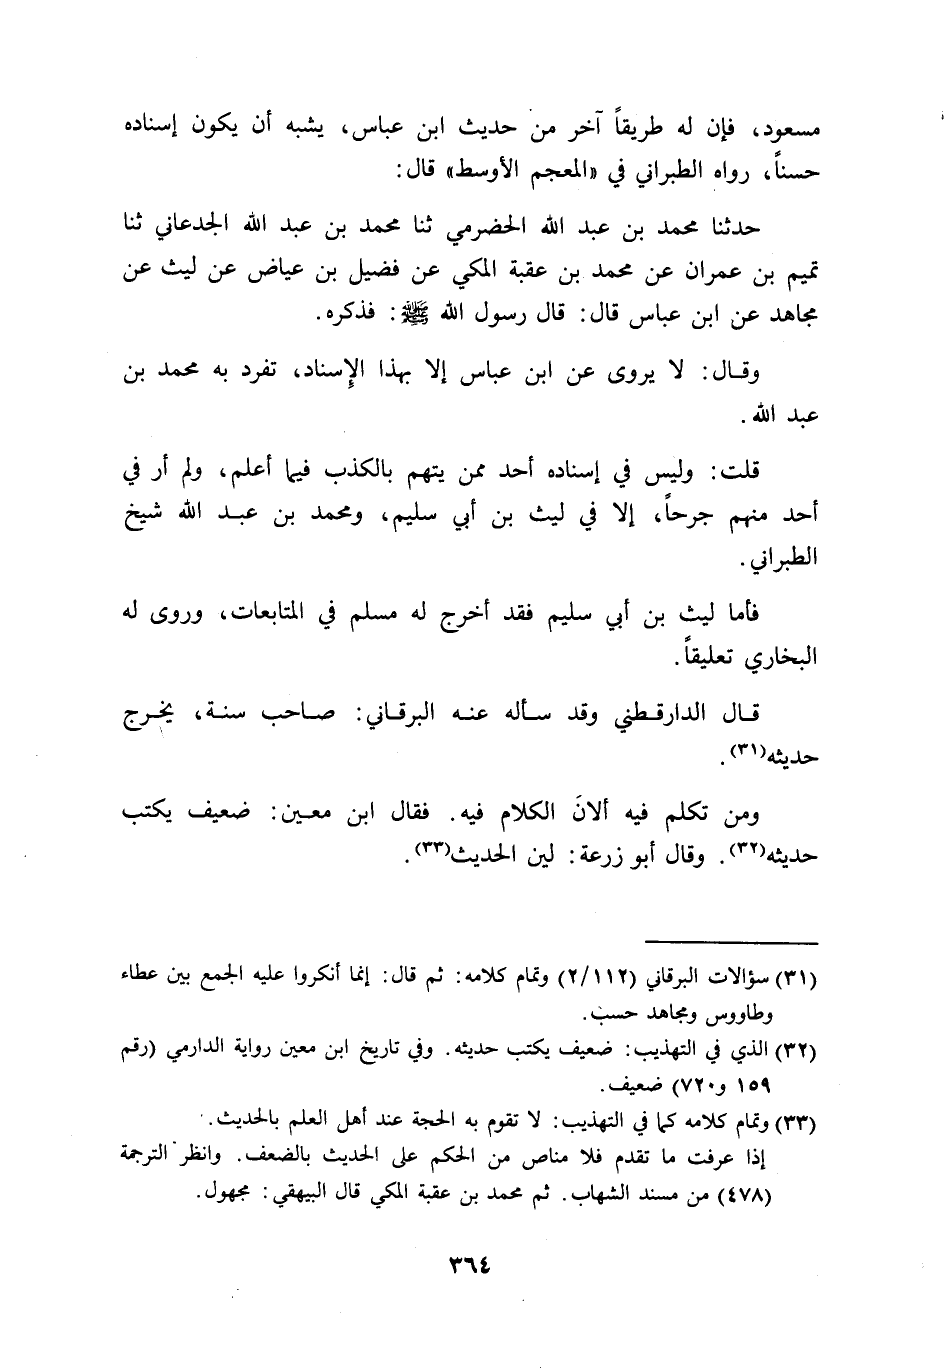 مسعود، فإن له طريقاً آخر من حديث ابن عباس، يشبه أن يكون إسناده
حسناً، رواه الطبراني في «المعجم الأوسط» قال:
حدثنا محمد بن عبد الله الحضرمي ثنا محمد بن عبد الله الجدعاني ثنا
تميم بن عمران عن محمد بن عقبة المكي عن فضيل بن عياض عن ليث عن
مجاهد عن ابن عباس قال: قال رسول الله ﷺ: فذكره.
وقـال: لا يروى عن ابن عباس إلا بهذا الإسناد، تفرد به محمد بن
عبد الله.
قلت: وليس في إسناده أحد ممن يتهم بالكذب فيما أعلم، ولم أر في
أحد منهم جرحاً، إلا في ليث بن أبي سليم، ومحمد بن عبـد الله شيخ
الطبراني.
فأما ليث بن أبي سليم فقد أخرج له مسلم في المتابعات، وروى له
البخاري تعليقاً.
قـال الدارقـطني وقد سـأله عنـه البرقـاني: صـاحب سنـة، يخـرج
حديثه(٣١).
ومن تكلم فيه ألانَ الكلام فيه. فقال ابن معـين: ضعيف يكتب
حديثه(٣٢). وقال أبو زرعة: لين الحديث(٣٣).
(٣١) سؤالات البرقاني (٢/١١٢) وتمام كلامه: ثم قال: إنما أنكروا عليه الجمع بين عطاء
وطاووس ومجاهد حسب.
(٣٢) الذي في التهذيب: ضعيف يكتب حديثه. وفي تاريخ ابن معين رواية الدارمي (رقم
١٥٩ و٧٢٠) ضعيف.
(٣٣) وتمام كلامه كما في التهذيب: لا تقوم به الحجة عند أهل العلم بالحديث.
إذا عرفت ما تقدم فلا مناص من الحكم على الحديث بالضعف. وانظر الترجمة
(٤٧٨) من مسند الشهاب. ثم محمد بن عقبة المكي قال البيهقي: مجهول.
٣٦٤